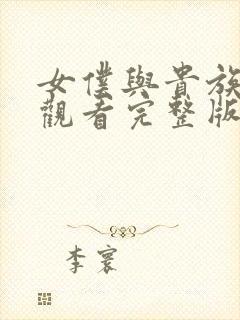 女僕與貴族
觀看完整版
李寰